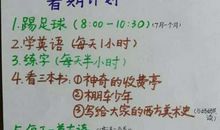 暑期计划
1.踢足球(8:00-10:30)(7月一个月)
2.学英语(每天1小时)
3.练字(每天半小时)
4.看三本书:①神奇的收费亭
②棚车少年
③写给大家的西方美术史